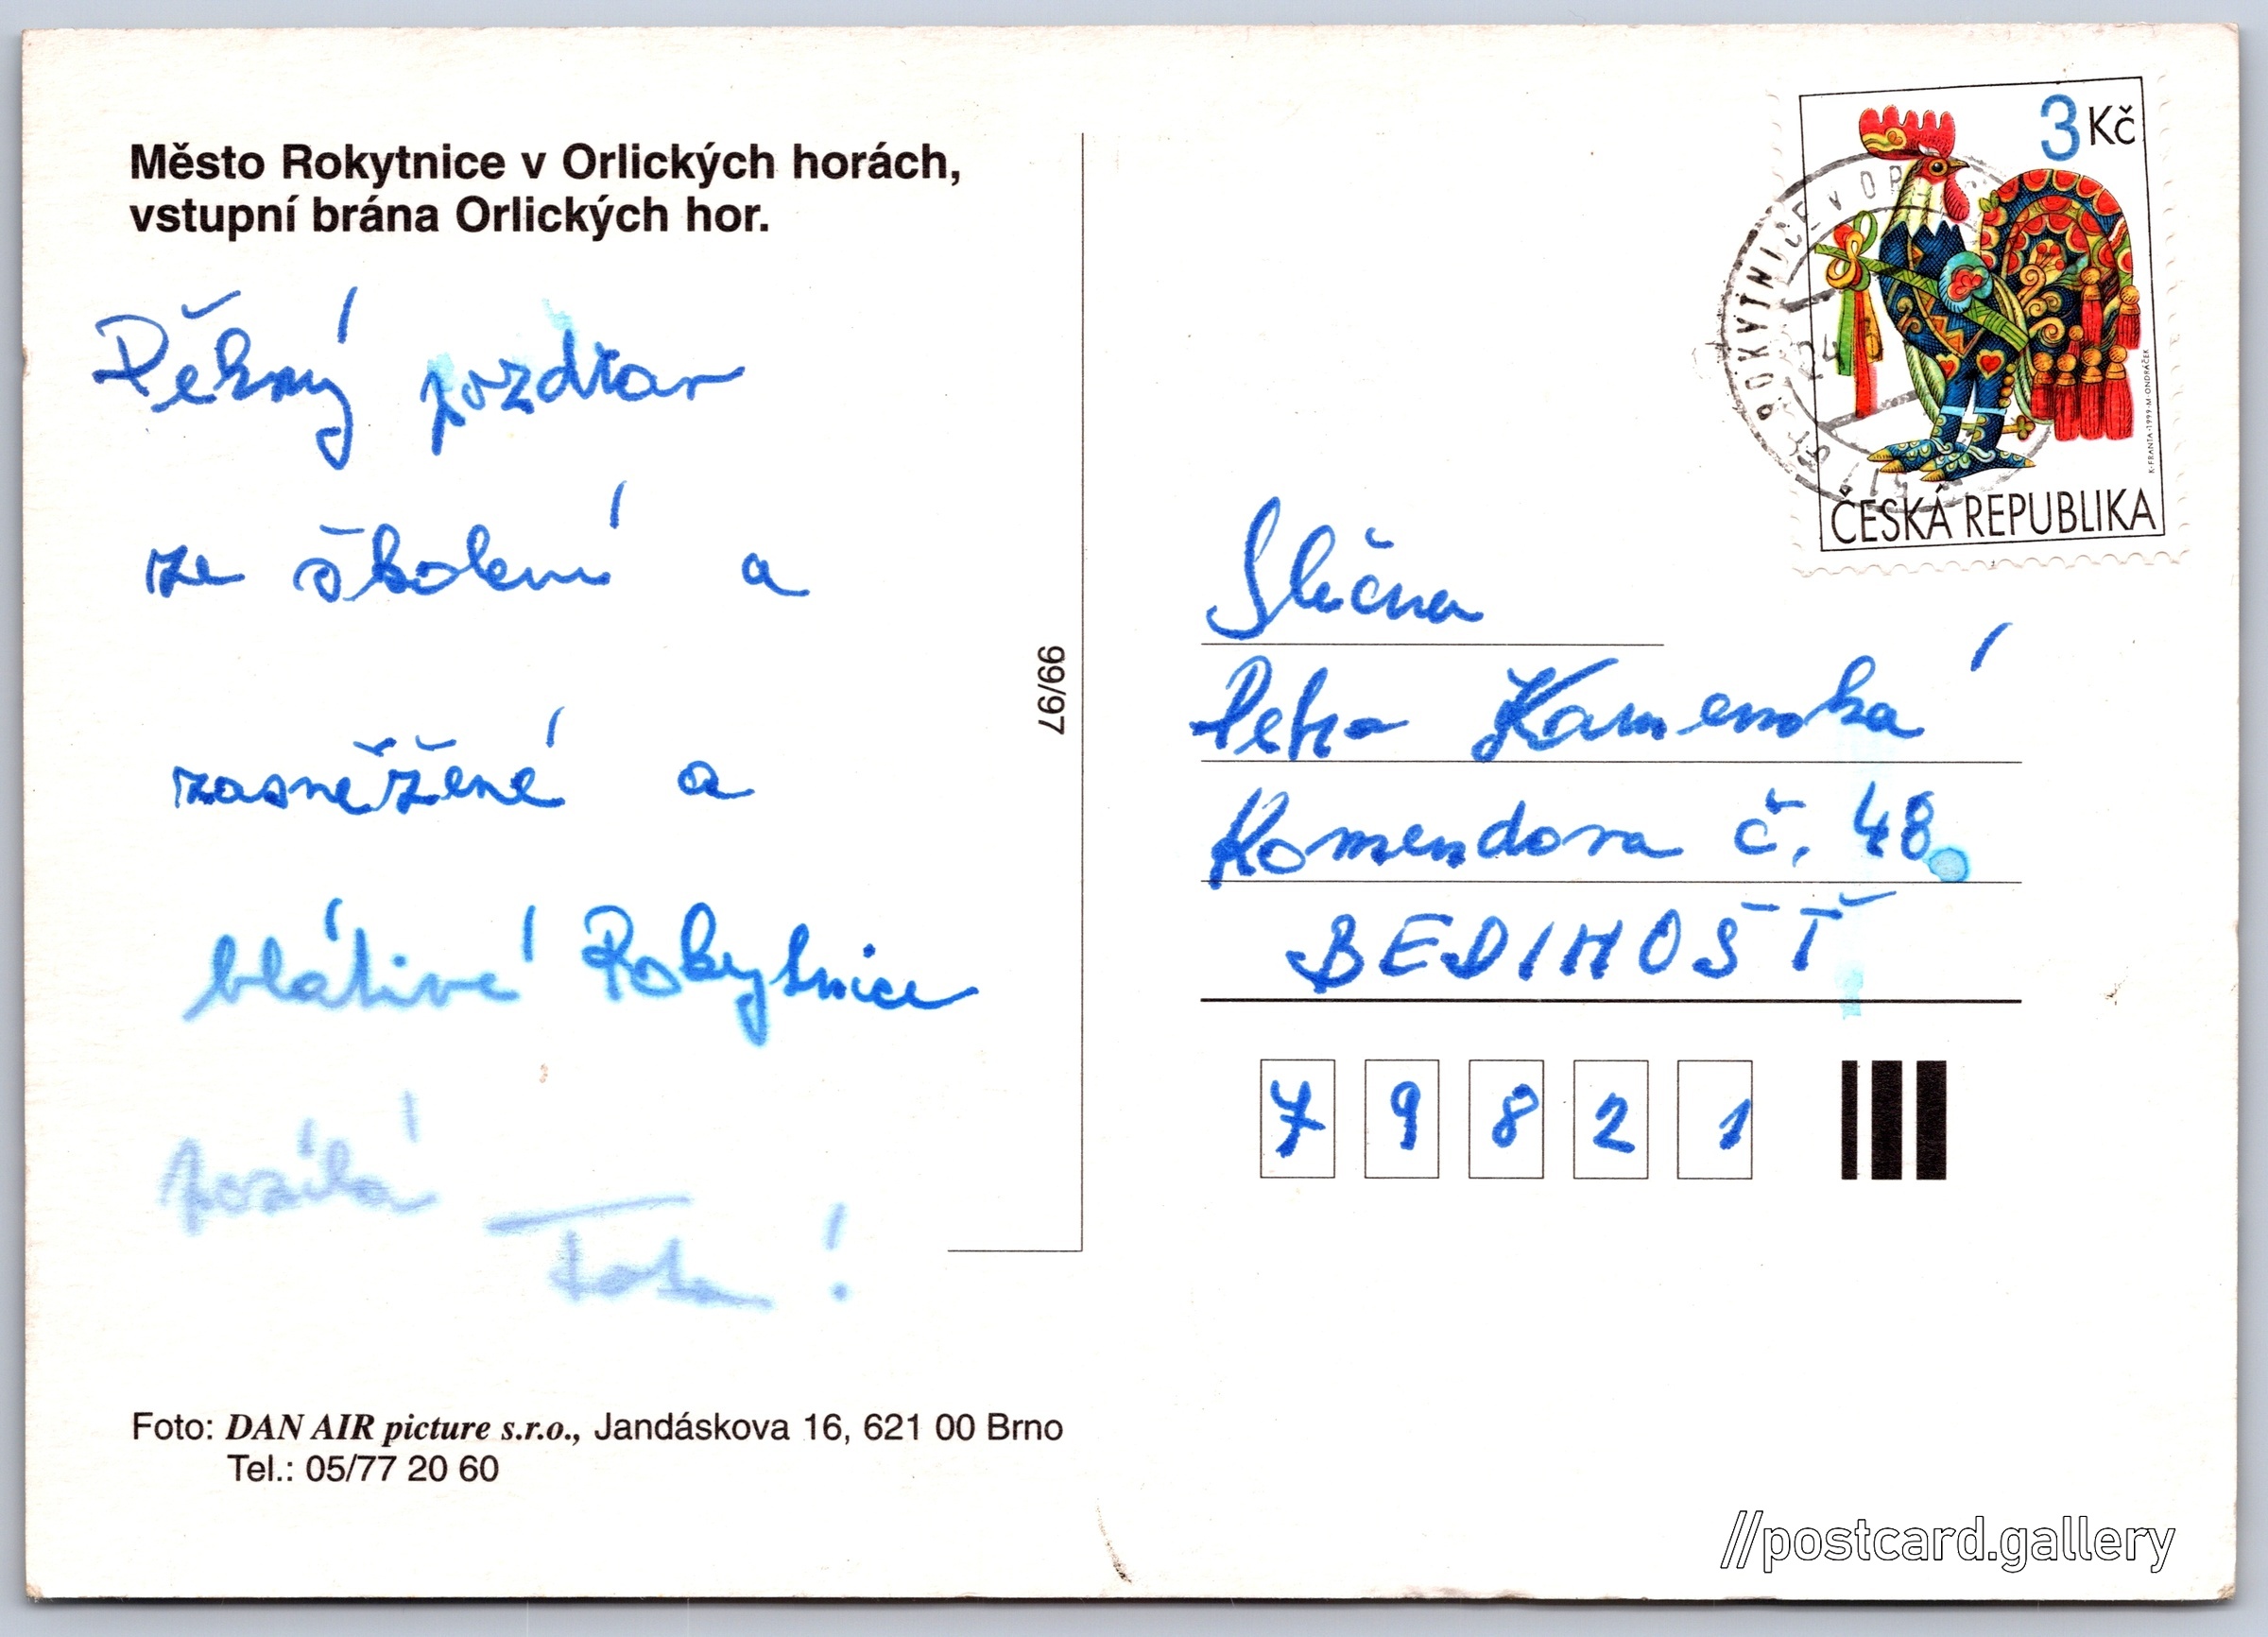 Město Rokytnice v Orlických horách,
vstupní brána Orlických hor.
Pěkný pozdrav
ze školení a
zasněžené a
blátivé Rokytnice
posílá
Foto: DAN AIR picture s.r.o., Jandáskova 16, 621 00 Brno
Tel.: 05/77 20 60
99/97
3 Kč
K·FRANTA·1999·M·ONDRÁČEK
ČESKÁ REPUBLIKA
ROKYTNICE V OR
Slečna
Petra Kamenská
Komendova č. 48
BEDIHOŠŤ
79821
//postcard.gallery